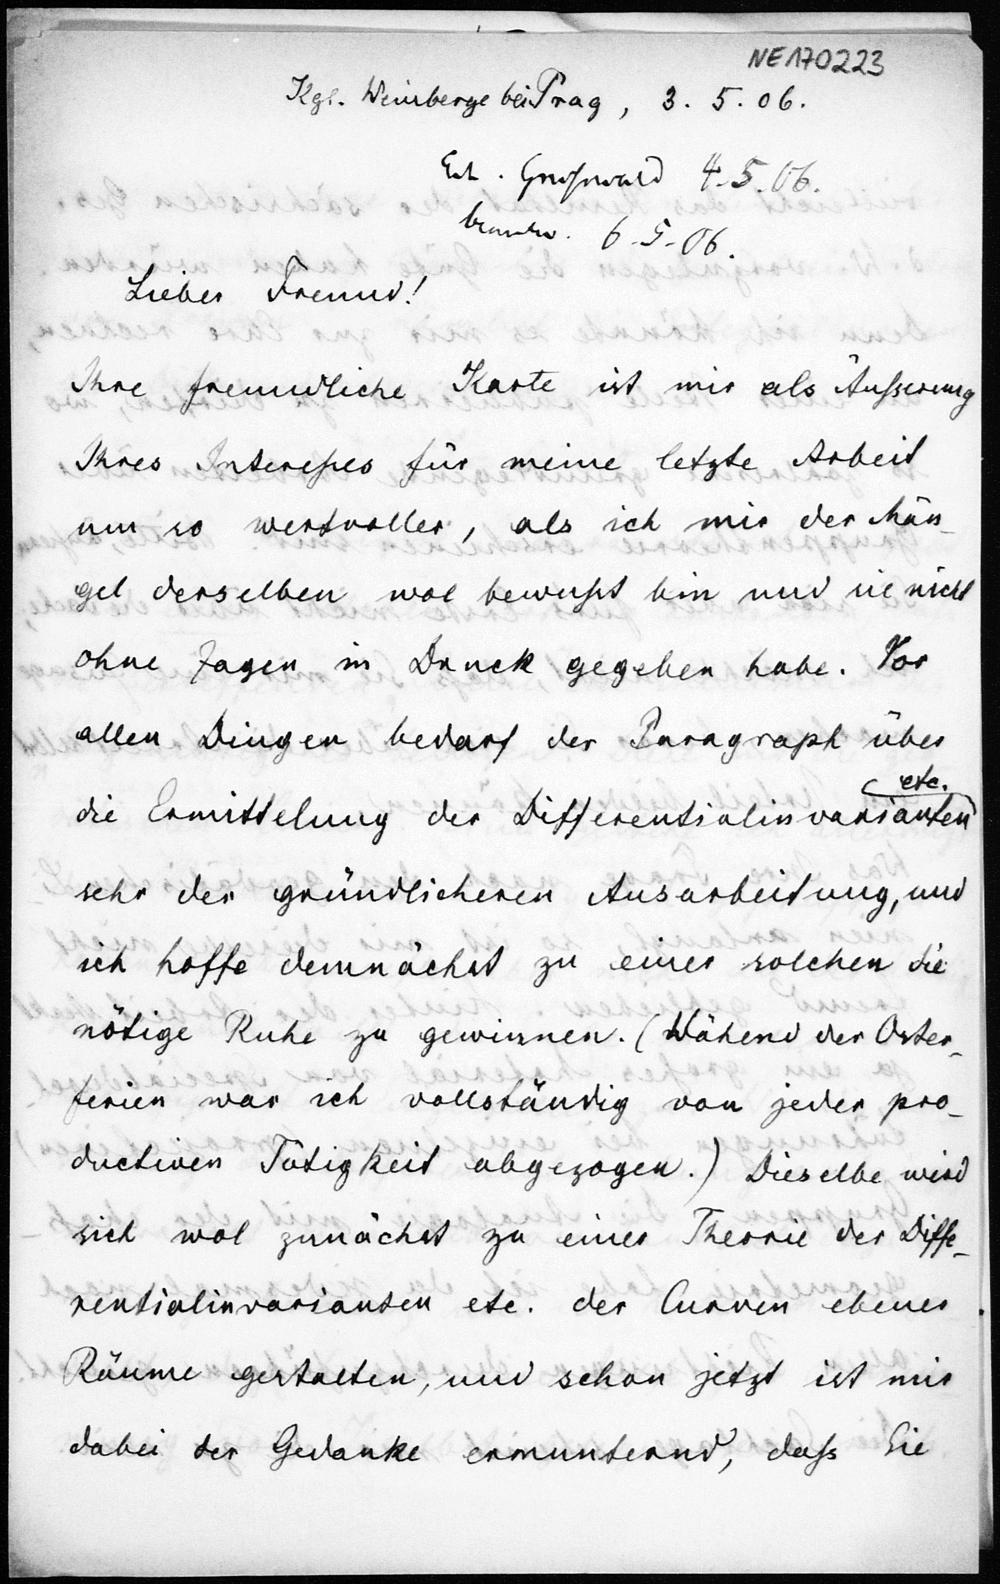 NE170223
Kgl. Weinberge bei Prag, 3. 5. 06.
Erh. Greifswald 4.5.06.
beantw. 6-5-06.
Lieber Freund!
Ihre freundliche Karte ist mir als Äußerung
Ihres Interesses für meine letzte Arbeit
um so wertvoller, als ich mir der Män-
gel derselben wol bewußt bin und sie nicht
ohne Zagen in Druck gegeben habe. Vor
allen Dingen bedarf der Paragraph über
etc.
die Ermittelung der Differentialinvarianten
sehr der gründlicheren Ausarbeitung, und
ich hoffe demnächst zu einer solchen die
nötige Ruhe zu gewinnen. (Wähend der Oster-
ferien war ich vollständig von jeder pro-
ductiven Tätigkeit abgezogen.) Dieselbe wird
sich wol zunächst zu einer Theorie der Diffe-
rentialinvarianten etc. der Curven ebener
Räume gestalten, und schon jetzt ist mir
dabei der Gedanke ermunternd, daß Sie